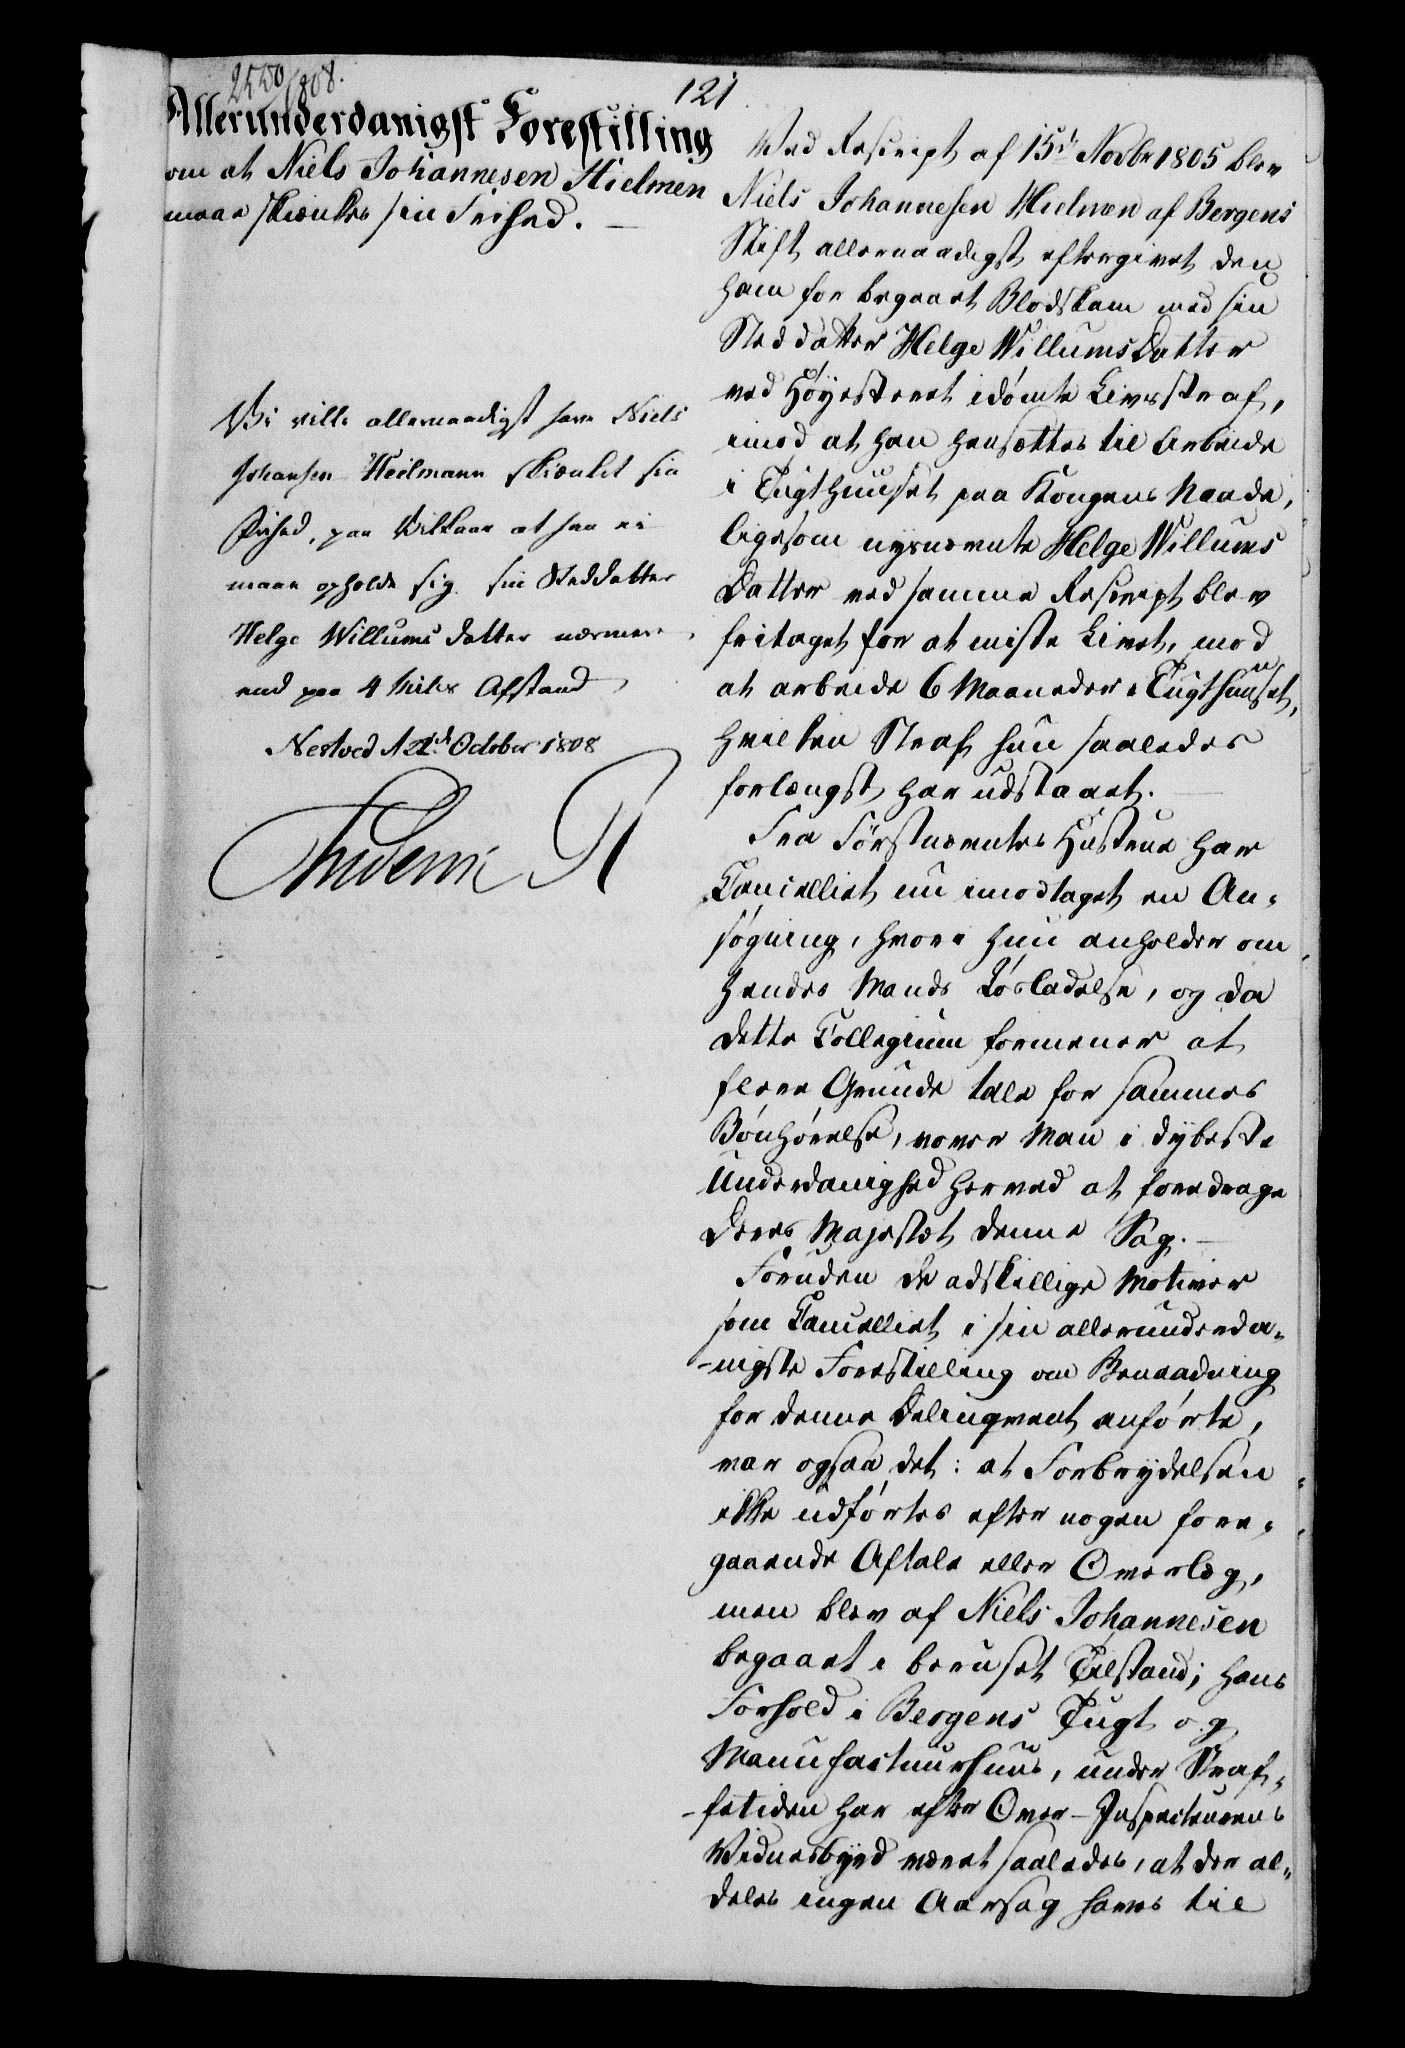 2550/808.
121
Allerunderdanigst Forestilling
om at Niels Johannesen Hielmen
maae skienkes sin Frihed.
Vi ville allernaadigst have Niels
Johansen Heilmann skienket sin
Frihed, paa Vilkaar at han ei
maae opholde sig sin Steddatter
Helge Willums datter nærmere
end paa 4 Miles Afstand
Nestved d 22d October 1808
Frideric R
Ved Rescript af 15de Novbr 1805 blev
Niels Johannesen Hielmen af Bergens
Stift allernaadigst eftergivet den
ham for begaaet Blodskam med sin
Steddatter Helge Willums Datter
ved Høyesteret idømte Livsstraf,
imod at han hensættes til Arbeide
i Tugthuuset paa Kongens Naade,
ligesom nysnævnte Helge Willums
Datter ved samme Rescript blev
fritaget for at miste Livet, mod
at arbeide 6 Maaneder i Tugthuuset,
hvilken Straf hun saaledes
forlængst har udstaaet.
Fra Førstnævntes Hustrue har
Cancelliet nu imodtaget en An-
søgning, hvori hun anholder om
hendes Mands Løsladelse, og da
dette Collegium formener at
flere Grunde tale for sammes
Bønhørelse, vover Man i dybeste
Underdanighed herved at foredrage
Deres Majestæt denne Sag.
Foruden de adskillige Motiver
som Cancelliet i sin allerunderda-
-nigste Forestilling om Benaadning
for denne Delinqvent anførte,
var ogsaa det: at Forbrydelsen
ikke udførtes efter nogen fore-
gaaende Aftale eller Overlæg,
men blev af Niels Johannesen
begaaet i beruset Tilstand; hans
Forhold i Bergens Tugt og
Manufactuurhuus, under Straf-
-fetiden har efter Over-Inspecteurens
Vidnesbyrd været saaledes, at der al-
deles ingen Aarsag haves til